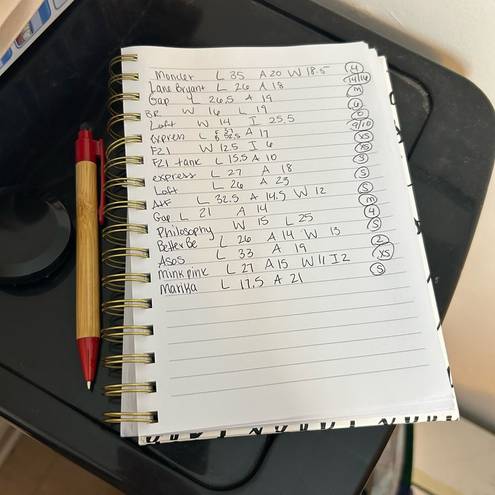 Moncler L 35 A 20 W 18.5 4
Lane Bryant L 26 A 18 14/16
Gap L 26.5 A 19 M
BR W 16 L 19 6
Loft W 14 I 25.5 0
Express L F 31 B 32.5 A 17 9/10
F21 W 12.5 I 6 XS
F21 tank L 15.5 A 10 XS
express L 27 A 18 S
Loft L 26 A 23 S
A&F L 32.5 A 14.5 W 12 S
Gap L 21 A 14 M
Philosophy W 15 L 25 4
BetterBe L 26 A 14 W 13 S
Asos L 33 A 19 2
minkpink L 27 A 15 W 11 I 2 XS
Marika L 17.5 A 21 S